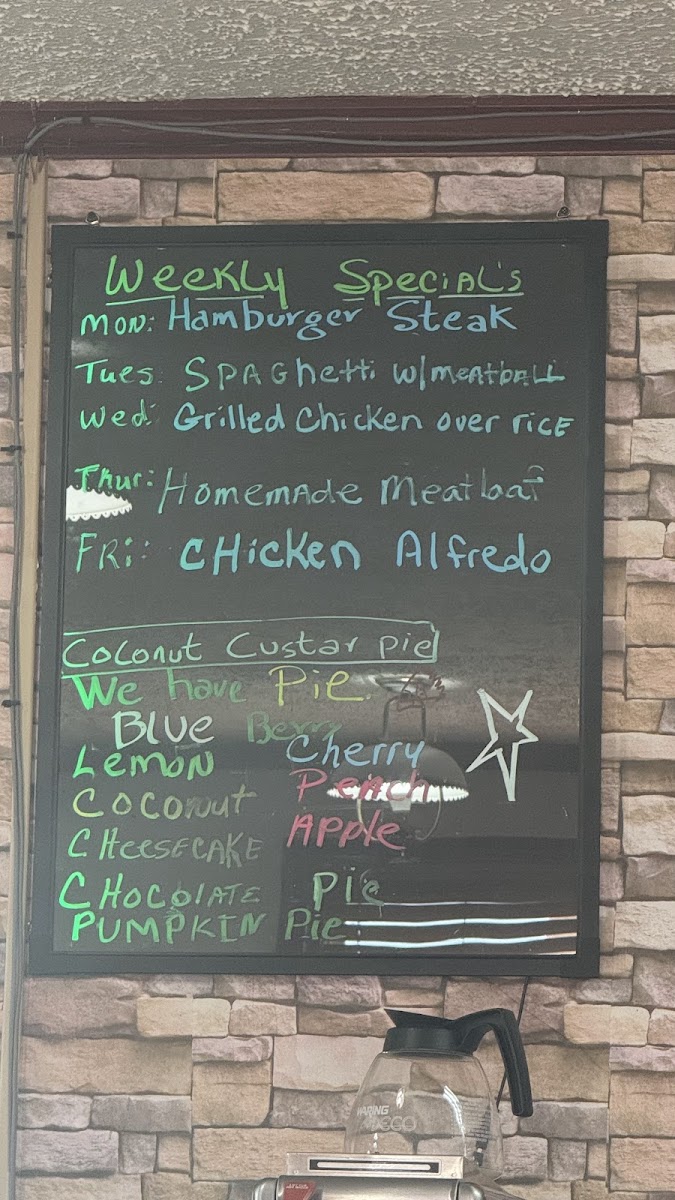 Weekly Special's
Mon: Hamburger Steak
Tues: Spaghetti w/meatball
Wed: Grilled Chicken over rice
Thur: Homemade Meatloaf
Fri: Chicken Alfredo
Coconut Custar pie
We have Pie
Blue Berry
Lemon Cherry
Coconut Peach
Cheesecake Apple
Chocolate Pie
Pumpkin Pie
WARING